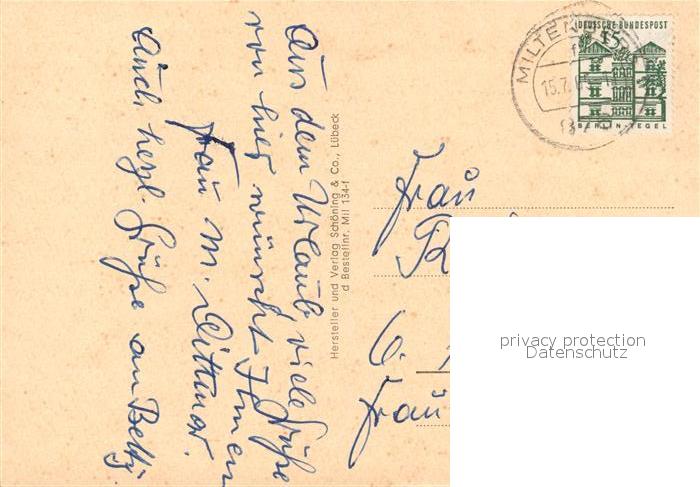 Aus dem Urlaub viele Grüße
von hier wünscht Ihnen
Frau M. Dittmar.
Auch herzl. Grüße an Betty
Hersteller und Verlag Schöning & Co., Lübeck
d Bestellnr. Mil 134-f
DEUTSCHE BUNDESPOST
15
BERLIN-TEGEL
MILTENBERG
15.7.
Frau
6.
Frau
privacy protection
Datenschutz